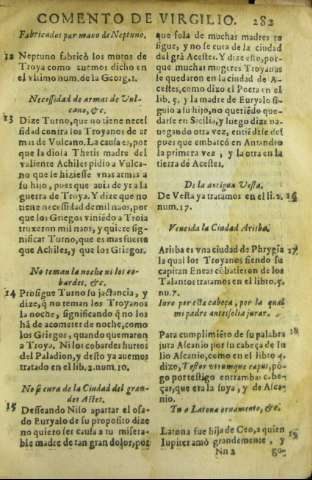 COMENTO DE VIRGILIO. 282
Fabricadas por mano de Neptuno.
12 Neptuno fabricò los muros de
Troya como auemos dicho en
el vltimo num. de la Georg. 1.
Necessidad de armas de Vul-
cano, &c.
13 Dize Turno, que no tiene necef
sidad contra los Troyanos de ar
mas de Vulcano. La causa es, por
que la diosa Thetis madre del
valiente Achiles pidio a Vulca-
no que le hiziesse vnas armas a
su hijo, pues que auia de yr a la
guerra de Troya. Y dize que no
tiene necessidad de mil naos, por
que los Griegos viniēdo a Troia
truxeron mil naos, y quiere sig-
nificar Turno, que es mas fuerte
que Achiles, y que los Griegos.
No teman la noche ni los co-
bardes, &c.
14 Prosigue Turno su jactancia, y
dize, q̃ no teman los Troyanos
la noche, significando q̃ no los
hà de acometer de noche, como
los Griegos, quando quemaron
a Troya. Ni los cobardes hurtos
del Paladion, y desto ya auemos
tratado en el lib. 2. num. 10.
No se cura de la Ciudad del gran-
de Acestes.
15 Desseando Niso apartar el osa-
do Euryalo de su proposito dize
no quiero ser causa a tu misera-
ble madre de tan gran dolor, por
que sola de muchas madres te
sigue, y no se cura de la ciudad
del grã Acestes. Y dize esto, por-
que muchas mugeres Troyanas
se quedaron en la ciudad de A-
cestes, como dixo el Poeta en el
lib. 5. y la madre de Euryalo si-
guio a su hijo, no queriēdo que-
darse en Sicilia, y luego dize na-
uegando otra vez, entiēdese des
pues que embarcò en Antandro
la primera vez, y la otra en la
tierra de Acestes.
De la antigua Vesta.
De Vesta ya tratamos en el li. 2. 16
num. 17.
Vencida la Ciudad Arisba.
Arisba es vna ciudad de Phrygia 17
la qual los Troyanos siendo su
capitan Eneas cõbatieron de los
Talantos tratamos en el libro. 5.
nu. 7.
Iuro por esta cabeça, por la qual
mi padre antes solia jurar.
Para cumplimiēto de su palabra 18
jura Ascanio por su cabeça de Iu
lio Ascanio, como en el libro 4.
dixo, Testor vtrumque caput, põ-
go por testigo entrambas cabe-
ças, que era la suya, y de Asca-
nio.
Tu o Latona ornamento, &c.
Latona fue hija de Ceo, a quien 19
Iupiter amò grandemente, y
Nn 2 go-